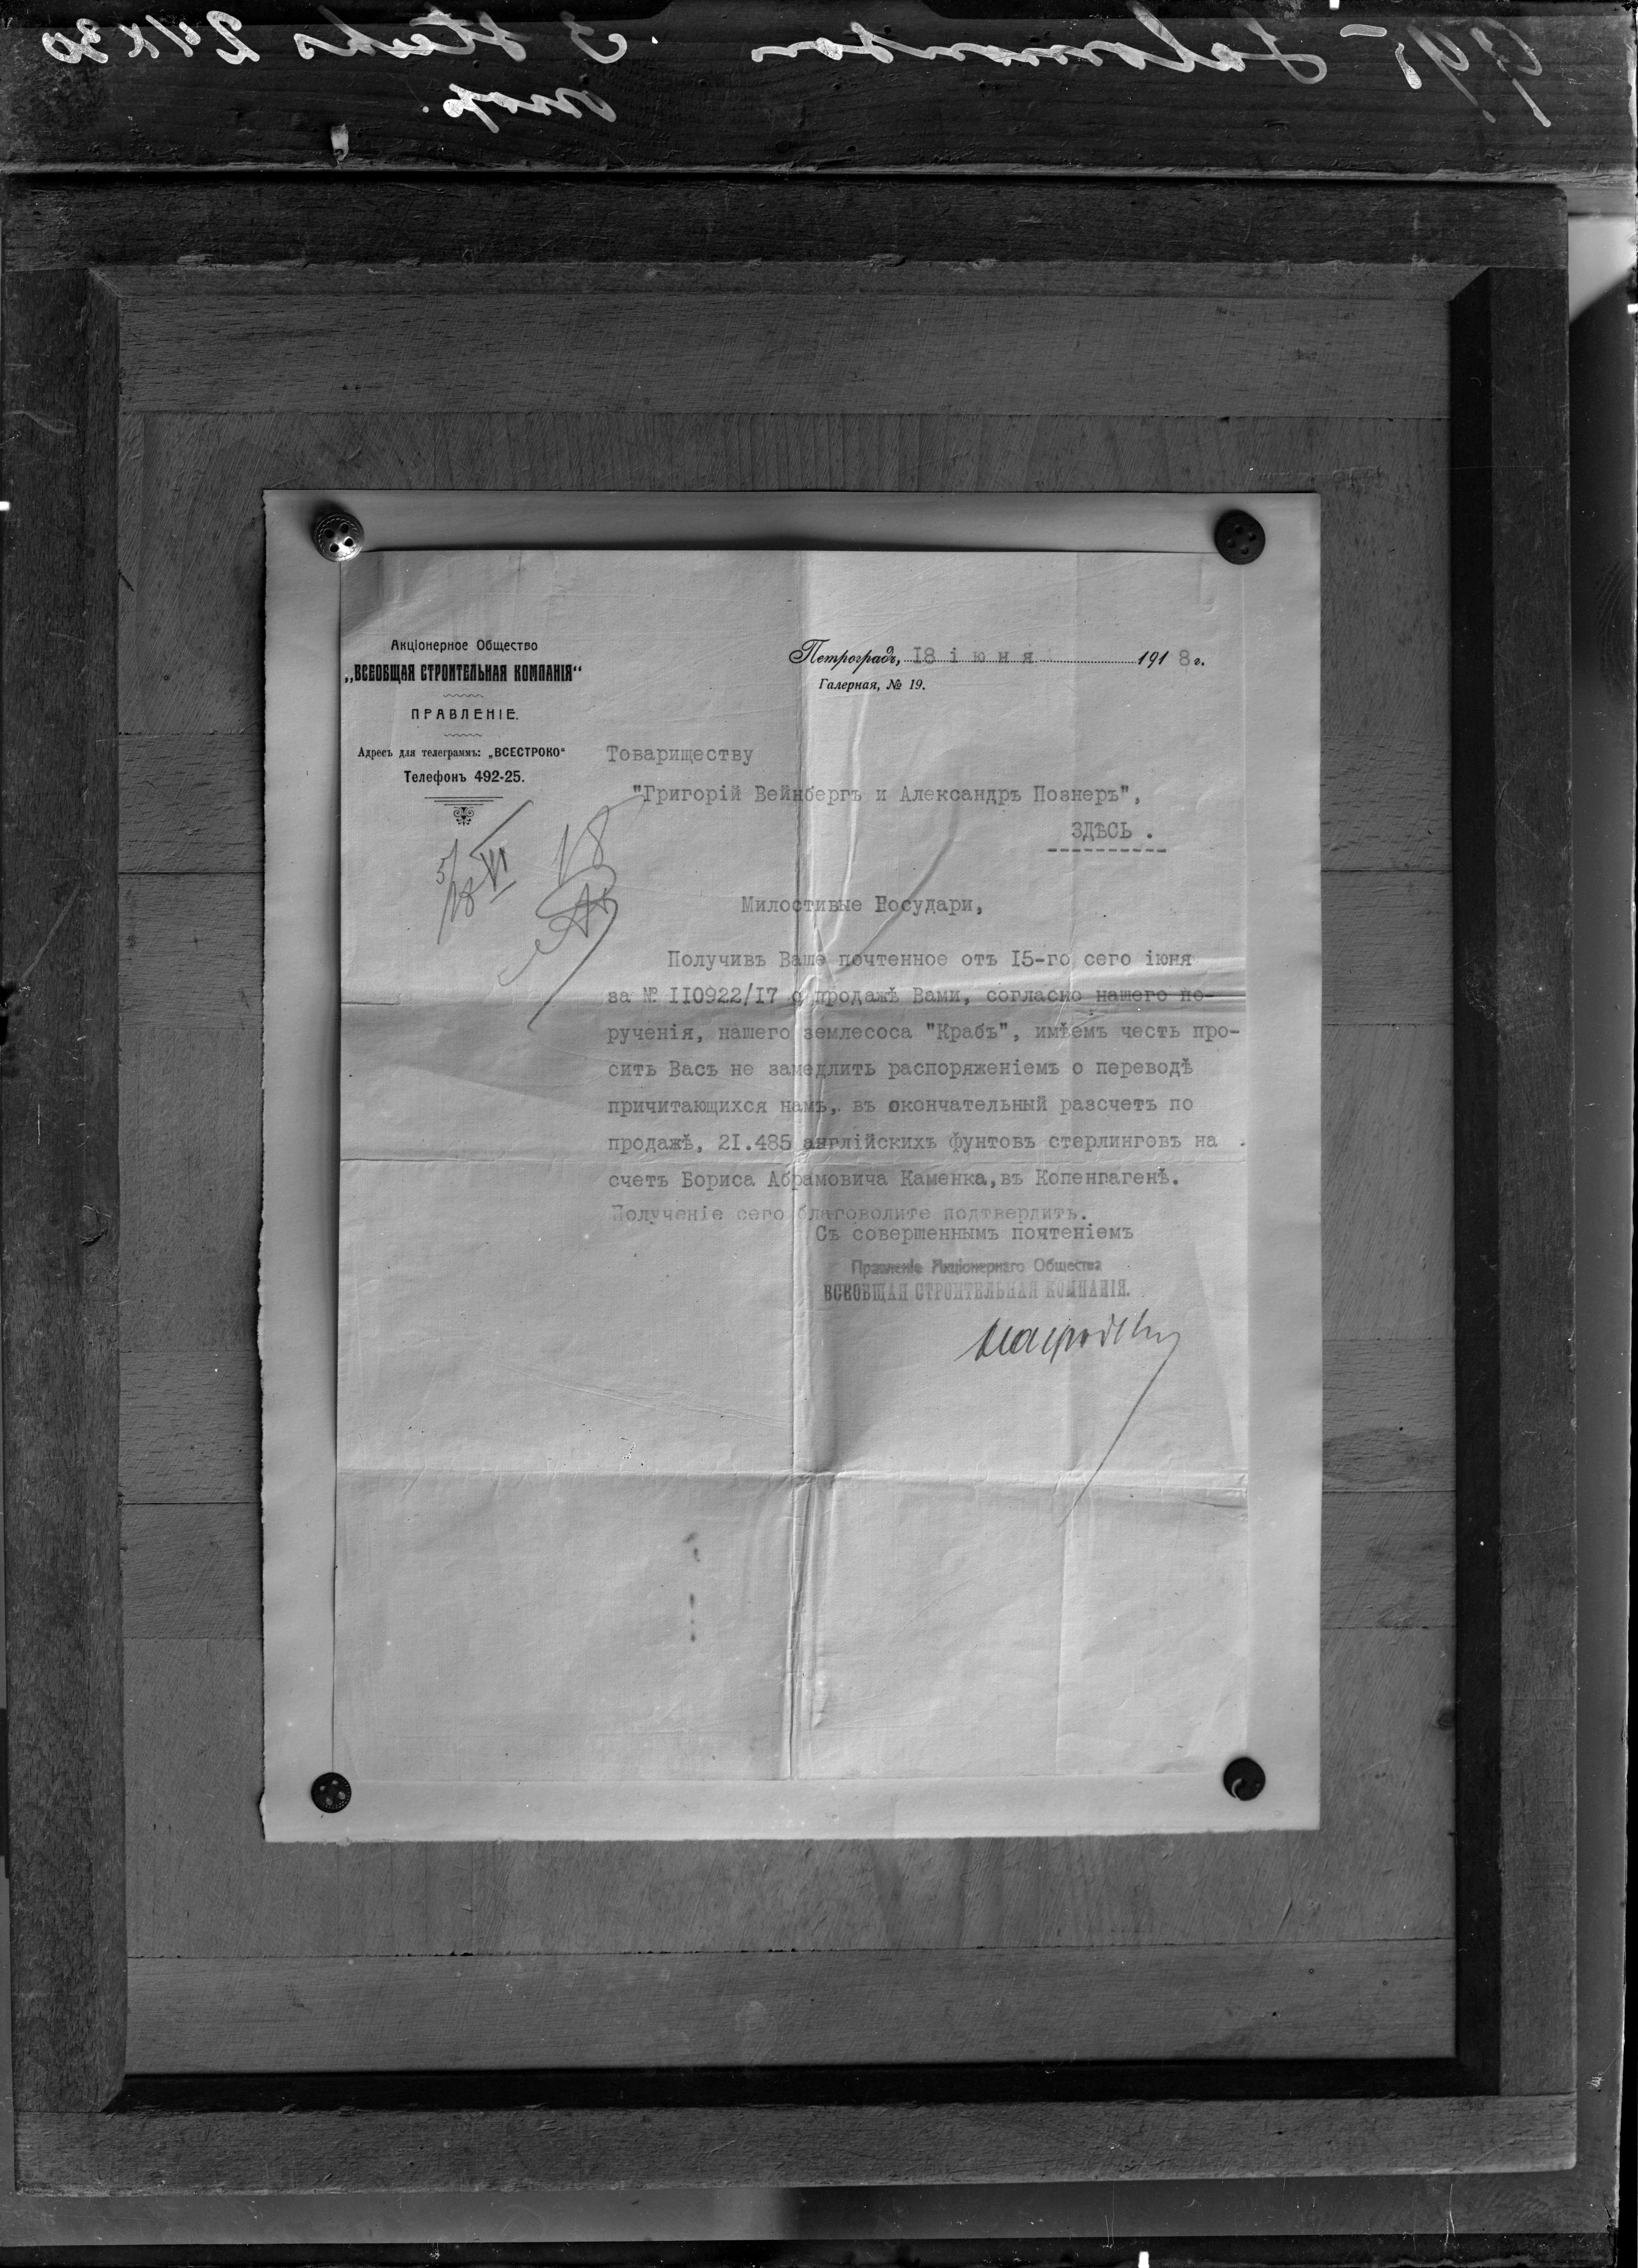 Акціонерное Общество
„ВСЕОБЩАЯ СТРОИТЕЛЬНАЯ КОМПАНІЯ“
ПРАВЛЕНІЕ.
Адресъ для телеграммъ: „ВСЕСТРОКО“
Телефонъ 492-25.
Петроградъ, 18 іюня 1918 г.
Галерная, № 19.
5/18 VI 18
Товариществу
"Григорій Вейнбергъ и Александръ Познеръ",
ЗДѢСЬ .
Милостивые Государи,
Получивъ Ваше почтенное отъ I5-го сего іюня
за № II0922/I7 о продажѣ Вами, согласно нашего по-
рученія, нашего землесоса "Крабъ", имѣемъ честь про-
сить Васъ не замедлить распоряженіемъ о переводѣ
причитающихся намъ, въ окончательный разсчетъ по
продажѣ, 2I.485 англійскихъ фунтовъ стерлинговъ на
счетъ Бориса Абрамовича Каменка, въ Копенгагенѣ.
Полученіе сего благоволите подтвердить.
Съ совершеннымъ почтеніемъ
Правленіе Акціонернаго Общества
ВСЕОБЩАЯ СТРОИТЕЛЬНАЯ КОМПАНІЯ.